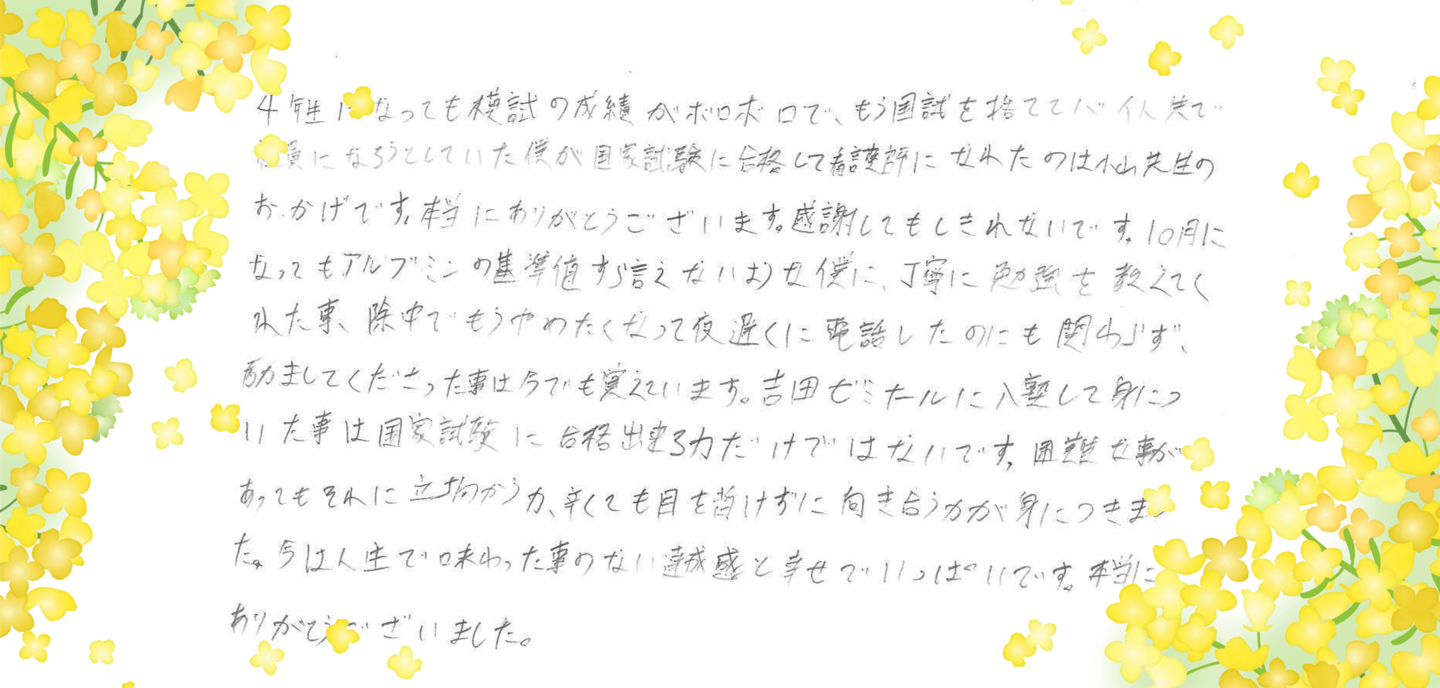 4年生になっても模試の成績がボロボロで、もう国試を捨ててバイト先で
社員になろうとしていた僕が国家試験に合格して看護師になれたのは小山先生の
おかげです。本当にありがとうございます。感謝してもしきれないです。10月に
なってもアルブミンの基準値すら言えないような僕に、丁寧に勉強を教えてく
れた事、途中でもうやめたくなって夜遅くに電話したのにも関わらず、
励ましてくださった事は今でも覚えています。吉田ゼミナールに入塾して身につ
いた事は国家試験に合格出来る力だけではないです。困難な事が
あってもそれに立ち向かう力、辛くても目を背けずに向き合う力が身につきまし
た。今は人生で味わった事のない達成感と幸せでいっぱいです。本当に
ありがとうございました。